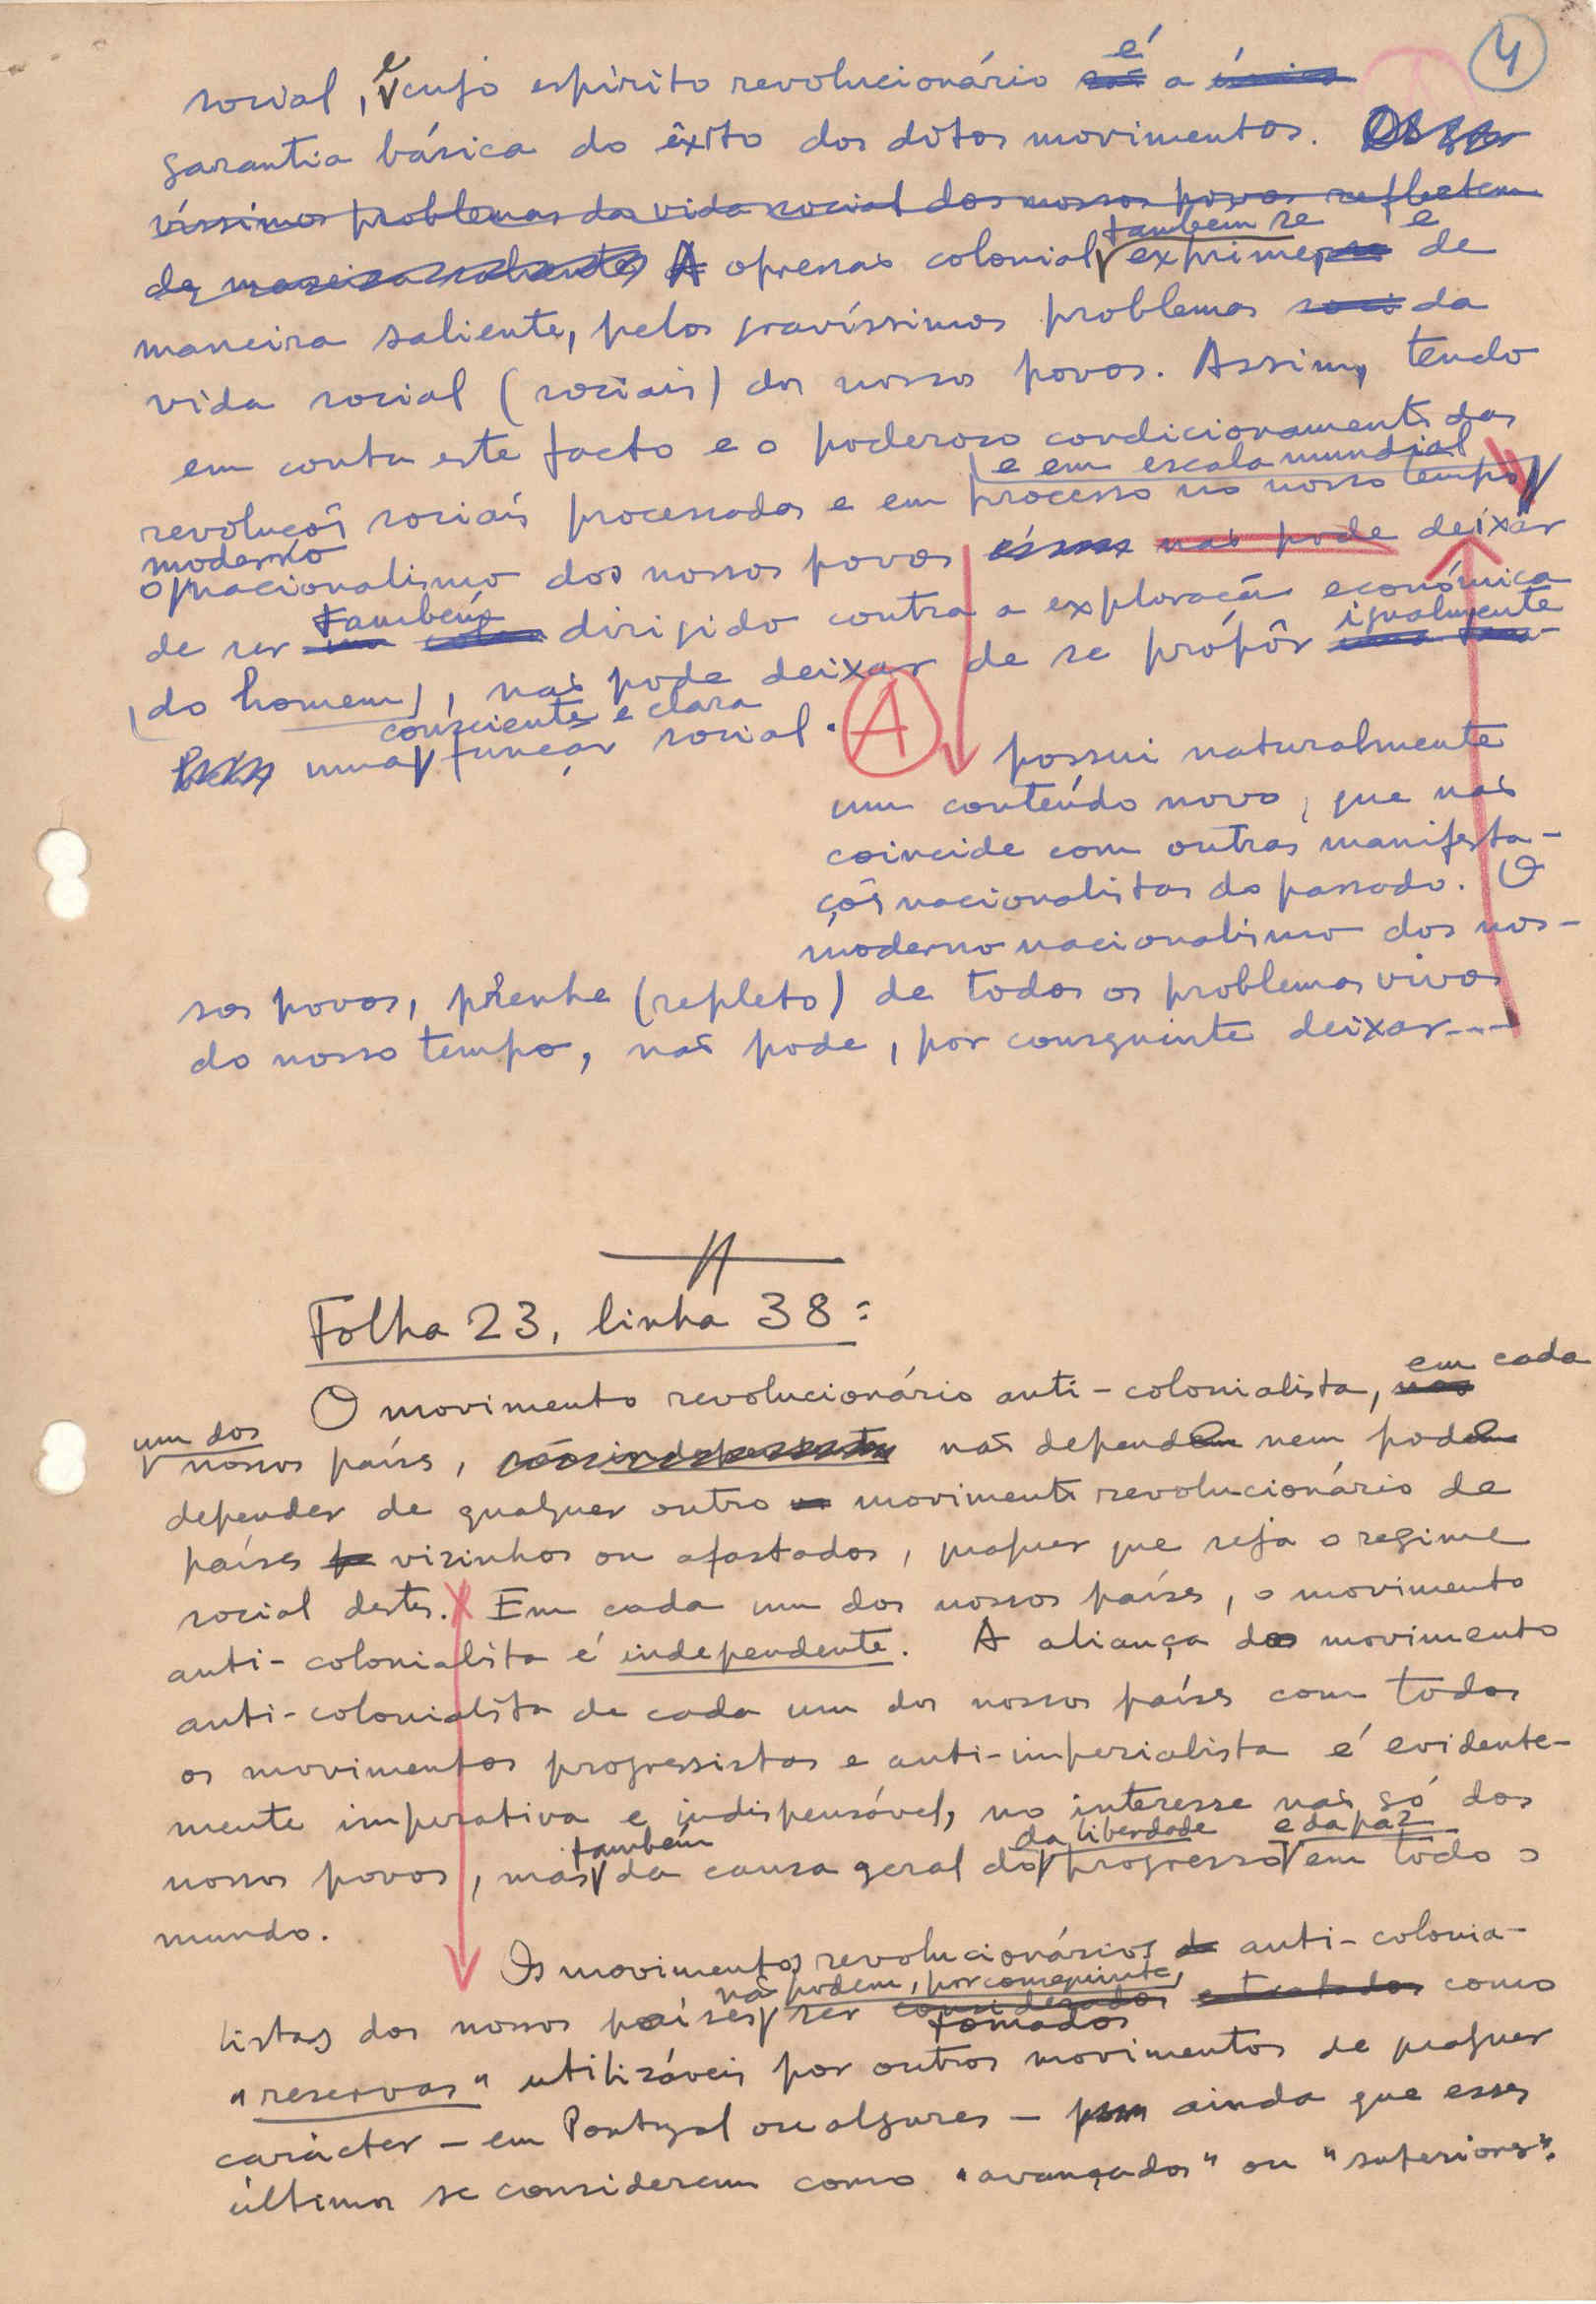 4
social, e cujo espírito revolucionário é a
garantia básica do êxito dos ditos movimentos. Os gra-
víssimos problemas da vida social dos nossos povos reflectem
de maneira saliente, A opressão colonial também se exprime, e de
maneira saliente, pelos gravíssimos problemas soci da
vida social (sociais) dos nossos povos. Assim, tendo
em conta este facto e o poderoso condicionamento das
revoluções sociais processadas e em processo no nosso tempo e em escala mundial
o moderno nacionalismo dos nossos povos não pode deixar
de ser também dirigido contra a exploração económica
(do homem), não pode deixar de se propôr igualmente
uma função consciente e clara social. A possui naturalmente
um conteúdo novo, que não
coincide com outras manifesta-
ções nacionalistas do passado. O
moderno nacionalismo dos nos-
sos povos, prenhe (repleto) de todos os problemas vivos
do nosso tempo, não pode, por conseguinte deixar----
Folha 23, linha 38:
O movimento revolucionário anti-colonialista, em cada
um dos nossos países, não depende nem pode
depender de qualquer outro movimento revolucionário de
países visinhos ou afastados, qualquer que seja o regime
social destes. X Em cada um dos nossos países, o movimento
anti-colonialista é independente. A aliança do movimento
anti-colonialista de cada um dos nossos países com todos
os movimentos progressistas e anti-imperialista é evidente-
mente imperativa e indispensável, no interesse não só dos
nossos povos, mas também da causa geral da liberdade do progresso e da paz em todo o
mundo.
Os movimentos revolucionários de anti-colonia-
listas dos nossos países não podem, por conseguinte, ser considerados tomados e tratados como
"reservas" utilizáveis por outros movimentos de qualquer
carácter - em Portugal ou algures - ainda que esses
últimos se considerem como "avançados" ou "superiores".